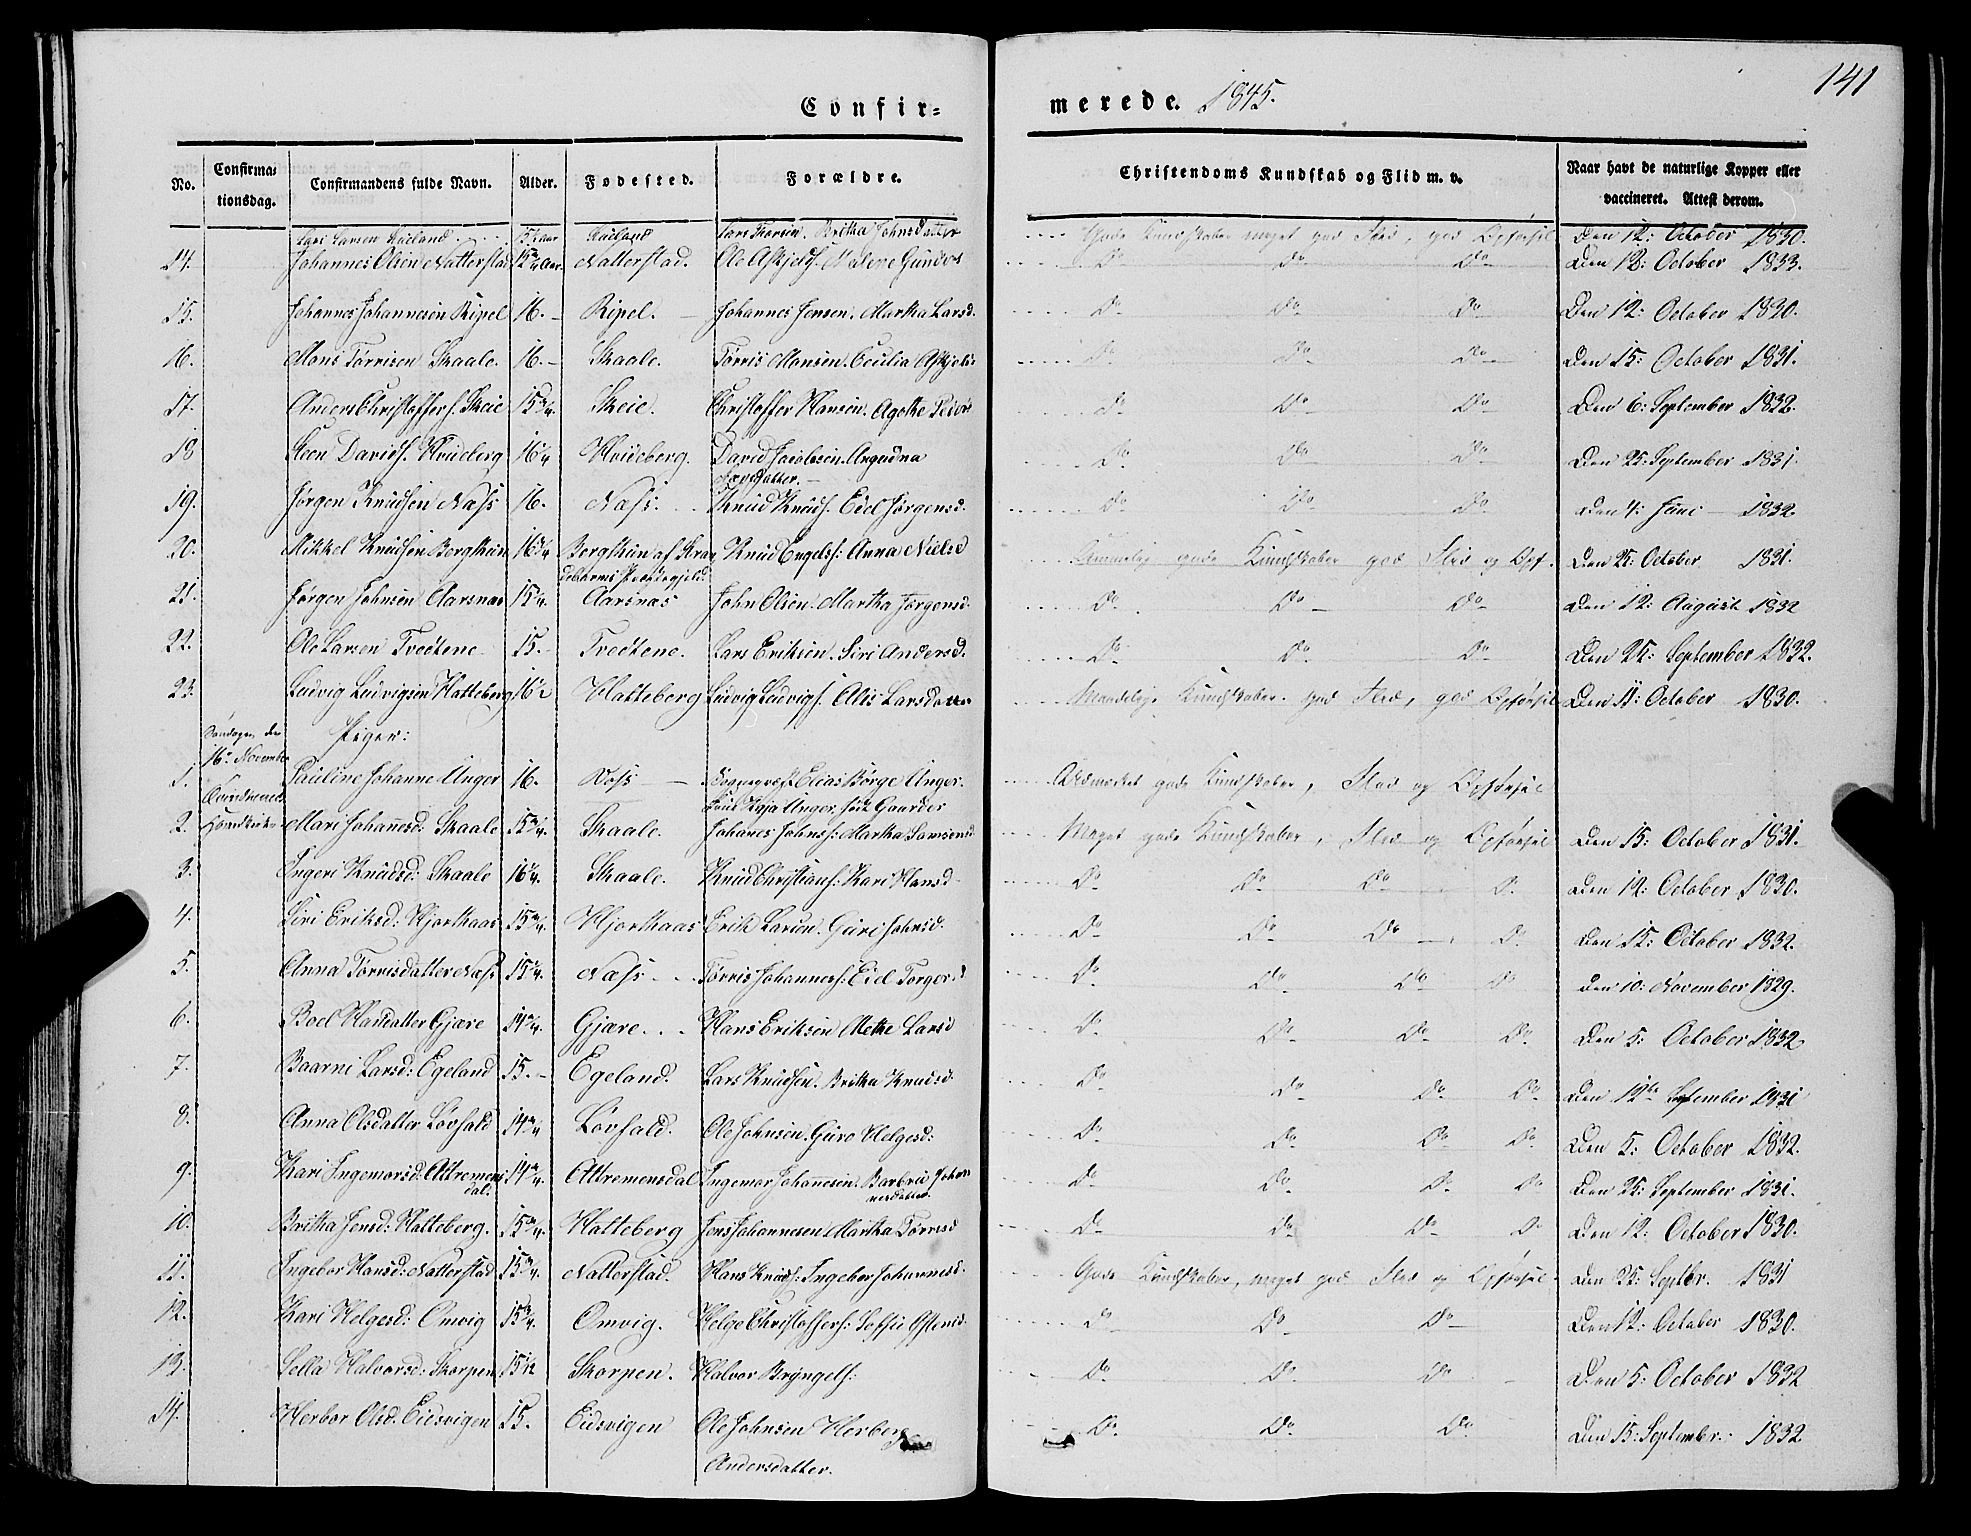 141
Confir= merede. 1845.
No. Confirma= tionsdag. Confirmandens fulde Navn. Alder. Fødested. Forældre. Christendoms Kundskab og Flid m. v. Naar havt de naturlige Kopper eller vaccineret. Attest derom.
Lars Larsen Britha Johnsdatter Gode Kundskaber meget god Flid, god Opførsel Den 12: October 1830.
14. Johannes Olsen Natterstad Natterstad. Ole Askjelds. Malene Do Do Do Den 12: October 1833.
15. Johannes Johannesen Ripel 16. Ripel. Johannes Jensen. Martha Larsd. Do Do Do Den 12: October 1830.
16. Mons Tørrisen Skaale. 16. Skaale. Tørris Monsen. Cecilia Askjelsd: Do Do Do Den 15: October 1831.
17. Anders Christoffers. Skeie 15 3/4. Skeie. Christoffer Hansen. Agothe Do Do Do Den 6: September 1832.
18 Steen Davids. Hvideberg 16 1/4 Hvideberg. David Jacobsen. Do Do Do Den 25: September 1831.
19. Jørgen Knudsen Næss 16. Næss. Knud Knuds. Edel Jørgensd. Do Do Do Den 4: Juni 1832.
20. Mikkel Knudsen Bergstein Bergstein af Stran debarms Præstegjeld Knud Engels: Anna Nielsd Temmelig gode Kundskaber god Flid og Opf. Den 25: October 1831.
21. Jørgen Johnsen Aarsnæs 15 1/4. Aarsnæs John Olsen. Martha Jørgensd. Do Do Do Den 12: August 1832
22. Ole Larsen Tvedtene 15. Tvedtene. Lars Eriksen. Siri Andersd. Do Do Do Den 25: September 1832.
23. Ludvig Ludvigsen Hatteberg 16 1/2 Hatteberg Ludvig Ludvigs. Alis Larsdatter Maadelige Kundskaber. god Flid, god Opførsel Den 11: October 1830.
Søndagen den 16de November
Piger:
1. Pauline Johanne Unger 16. Voss Elias Børge Unger. Unger født Gaarder Udmærket gode Kundskaber, Flid og Opførsel
2. Mari Johannesd: Skaale 15 3/4. Skaale. Johanes Johns: Martha Samsonsd Meget gode Kundskaber, Flid og Opførsel Den 15: October 1831.
3. Ingeri Knudsd: Skaale 16 1/4. Skaale. Knud Christians: Kari Hansd Do Do Do Do Den 12: October 1830.
4. Siri Eriksd: Hjorthaas 15 3/4. Hjorthaas Erik Larsen. Guri Johnsd. Do Do Do Do Den 15: October 1832.
5. Anna Tørrisdatter Næss 15 1/4. Næss Tørris Johannes: Eid Torgersd Do Do Do Do Den 10: November 1829.
6. Boel Hansdatter Gjære 14 3/4. Gjære. Hans Eriksen Mette Larsd Do Do Do Do Den 5: October 1832
7. Baarni Larsd: Egeland 15. Egeland. Lars Knudsen. Britha Knudsd. Do Do Do Do Den 12te September 1831
8. Anna Olsdatter Løvfald 14 3/4 Løvfald. Ole Johnsen. Guro Helgesd: Do Do Do Do Den 5: October 1832.
9. Kari Ingemarsd: Attremensdal: 14 3/4. Attremensdal Ingemar Johannesen. Barbrü Johannesdatter Do Do Do Do Den 25: September 1831.
10. Britha Jensd: Hatteberg. 15 3/4. Hatteberg Jens Johannesen Martha Tørresd Do Do Do Do Den 12: October 1830.
11. Ingebor Hansd: Natterstad 15 3/4. Natterstad. Hans Knuds: Ingebor Johannesd. Gode Kundskaber, meget god Flid og Opførsel. Den 25: Septbr. 1831
12. Kari Helgesd: Omvig 15 3/4. Omvig. Helge Christoffers: Sofsie Ostensd. Do Do Do Den 12: October 1830.
13. Sella Halvorsd: Skorpen 15 1/2 Skorpen. Halvor Bryngels: Do Do Do Den 5: October 1832
14. Herbor Olsd: Eidsvigen 15. Eidsvigen Ole Johnsen Herborg Andersdatter. Do Do Do Den 15: Septembr. 1832